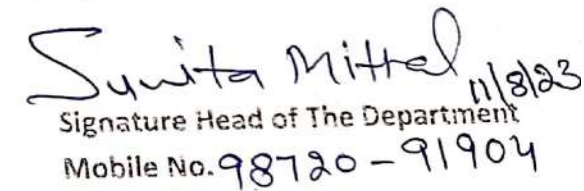 Sunita Mittal 11/8/23
Signature Head of The Department
Mobile No. 98720-91904